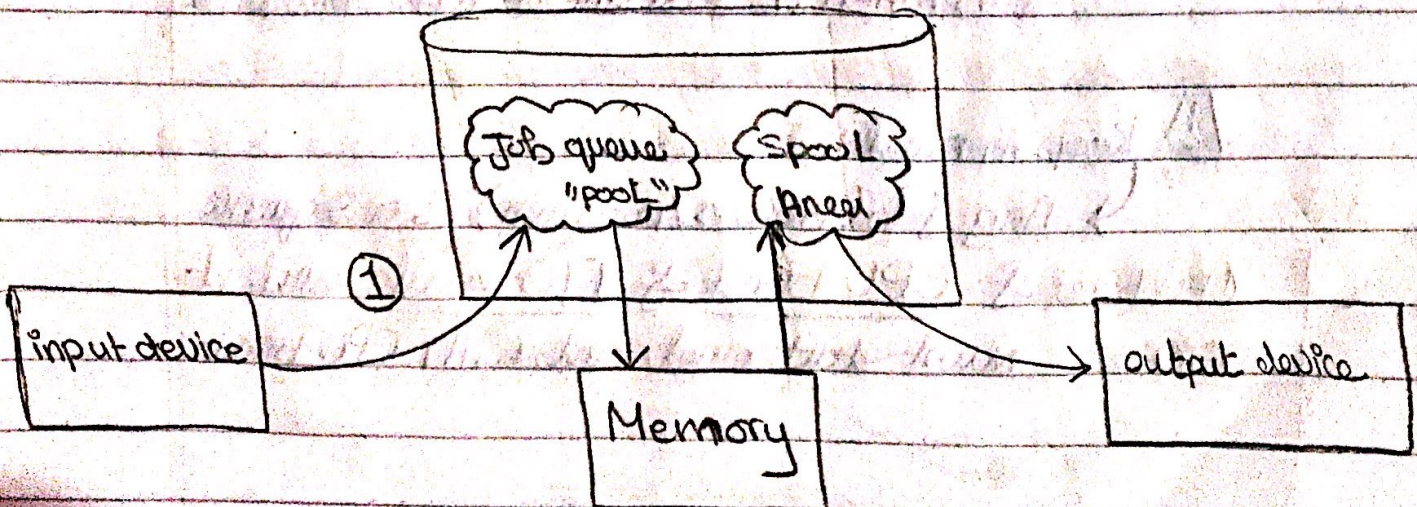 Job queue
"pool"
Spool
Area
①
input device
Memory
output device